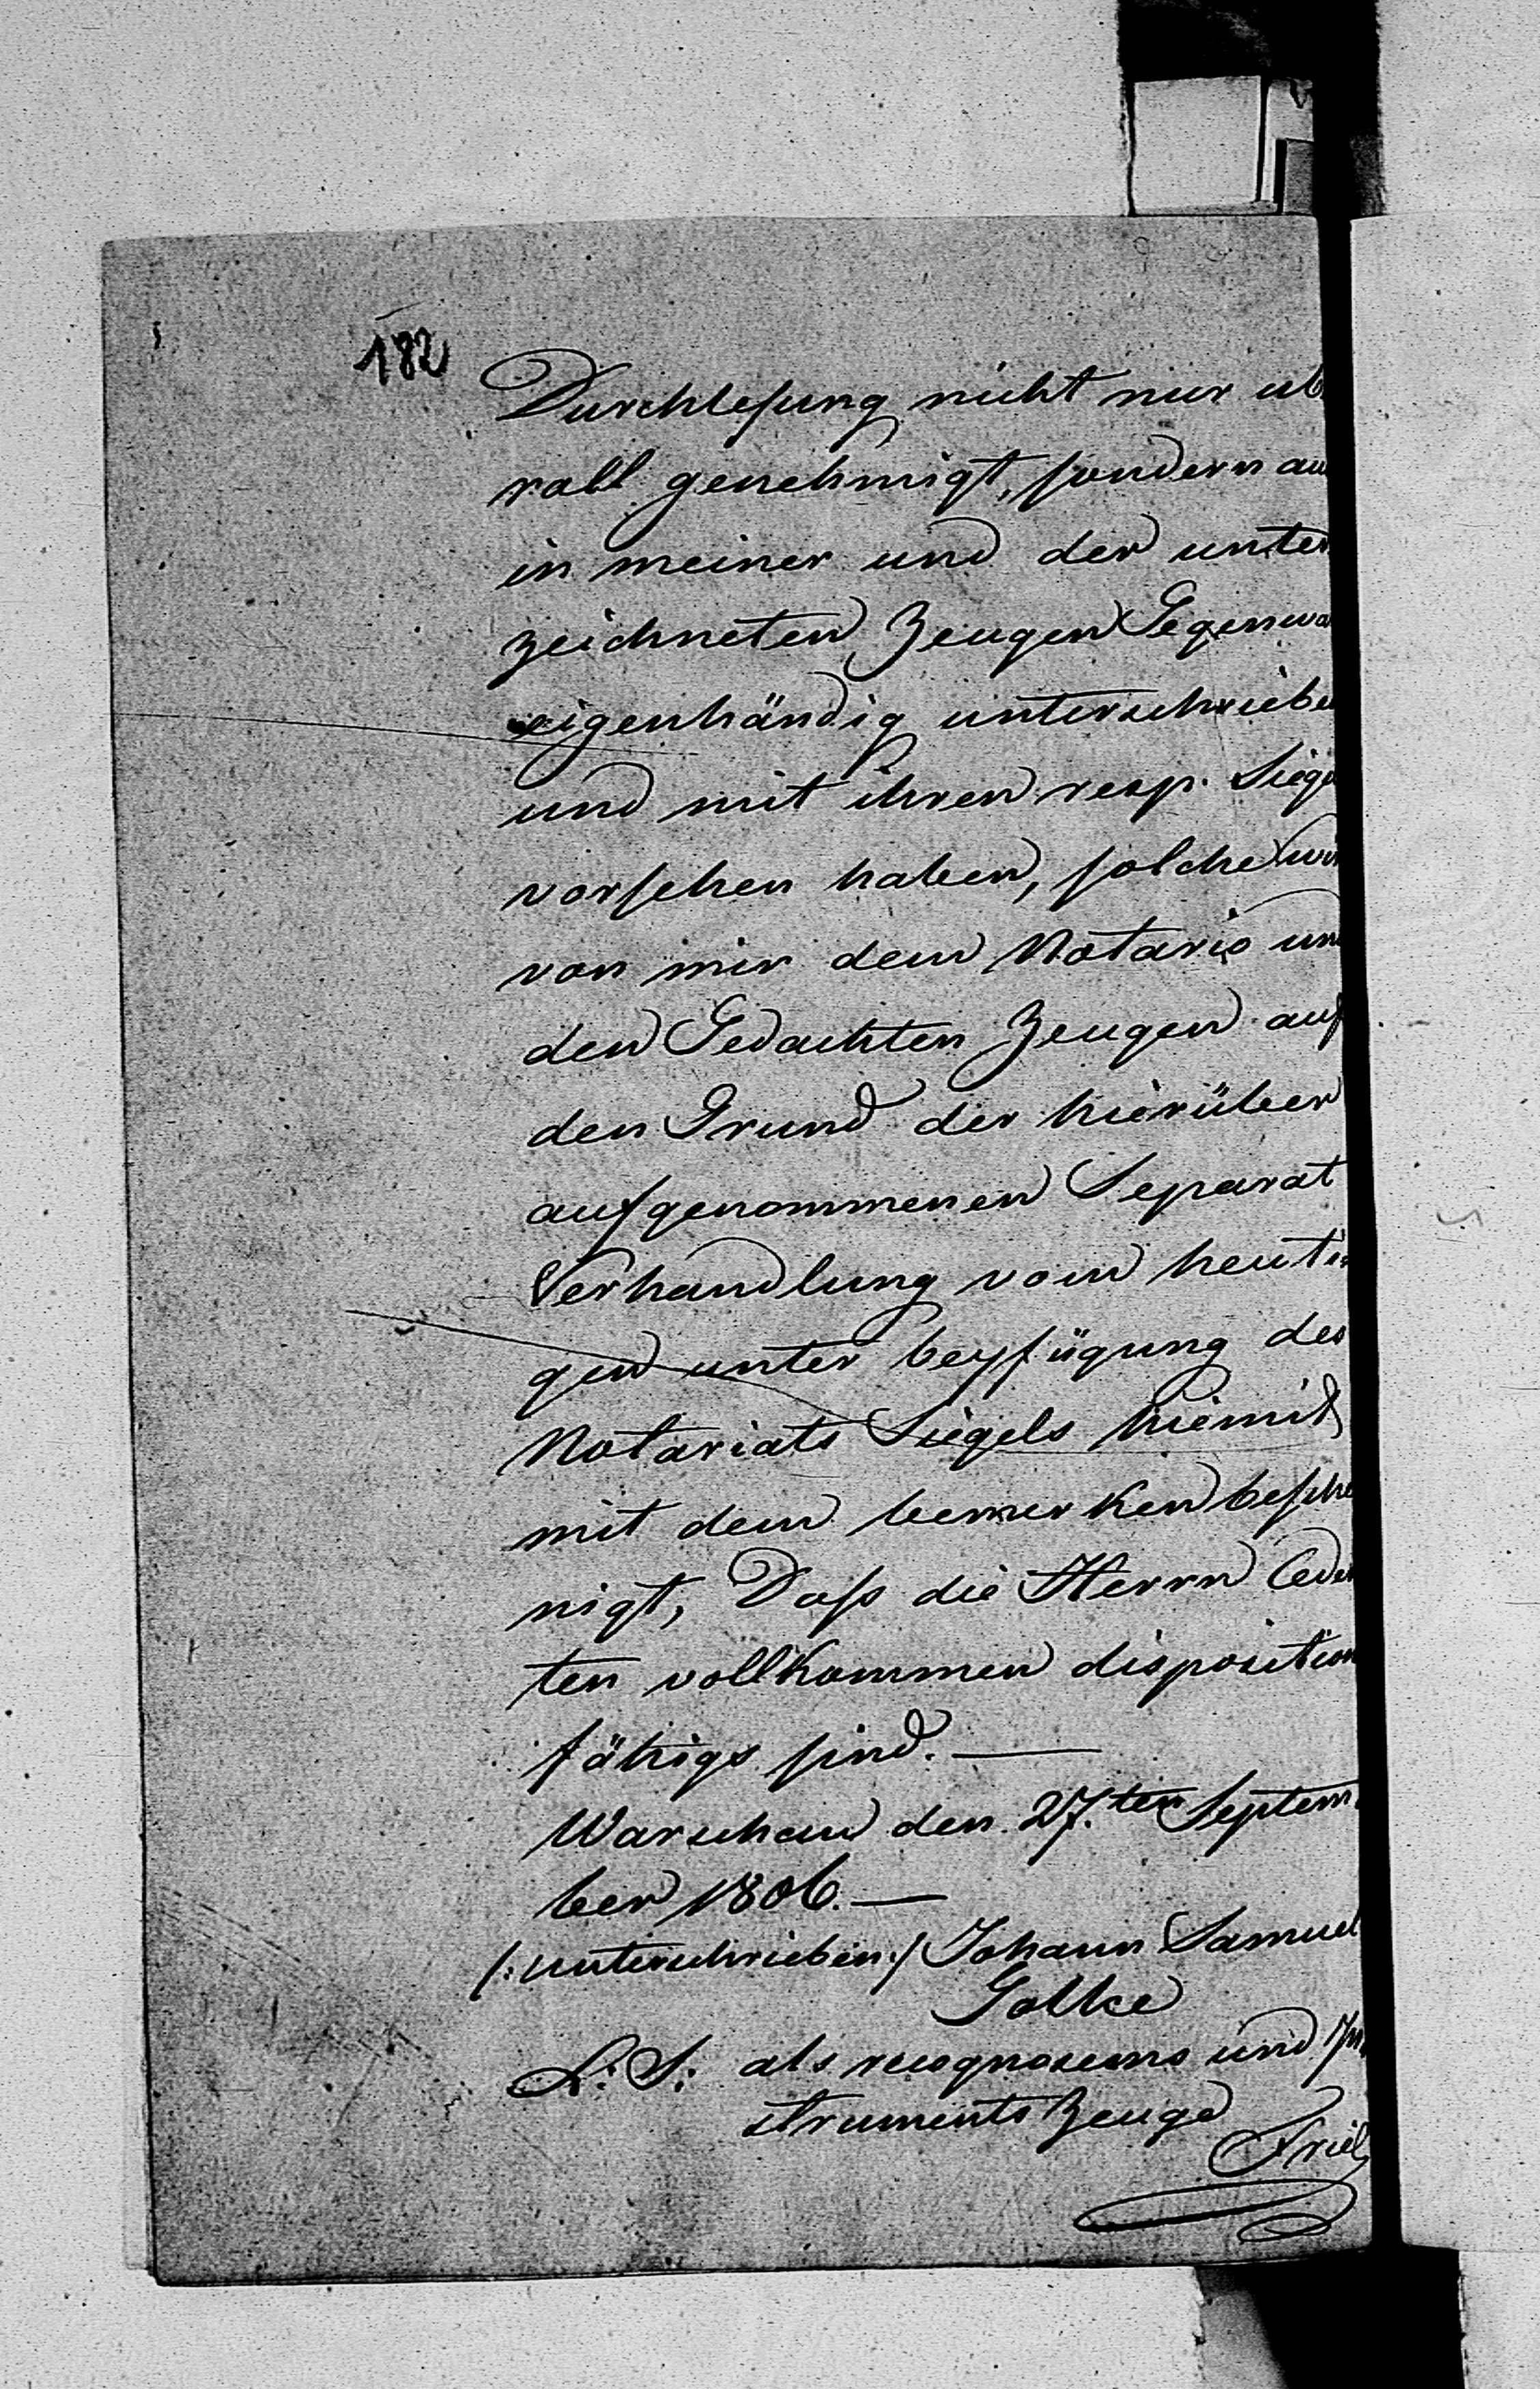 182
Durchlesung nicht nur üb
rall genehmigt, sondern au
in meiner und der unter
zeichneten Zeugen Gegenwa
eigenhändig unterschriebe
und mit ihren resp. Siege
vorsehen haben, solche wir
von mir dem Notario un
den Gedachten Zeugen auf
den Grund der hierüber
aufgenommenen Separat
Verhandlung vom heuti-
gen unter beyfügung des
Notariats Siegels hiemit
mit dem bemerken besche
nigt, Daß die Herrn Ceden
ten vollkommen disposition
fähigs sind. —
Warschau den 27.ten Septem
ber 1806. —
/: unterschrieben :/ Johann Samuel
Golke
L: S: als recognoscens und In
struments Zeuge